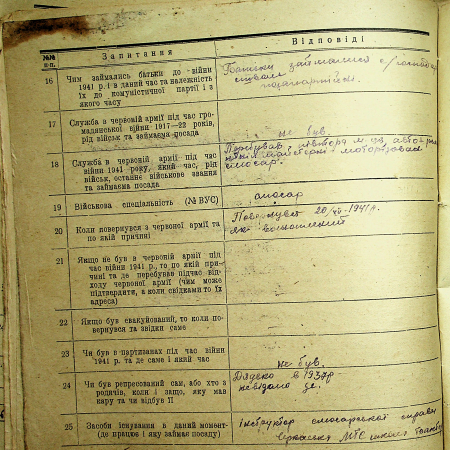 №№ п.п.
Запитання
Відповіді
16
Чим займались батьки до війни
1941 р. і в даний час та належність
їх до комуністичної партії і з
якого часу
Батьки займалися с/господ
безпартійні.
17
Служба в червоній армії під час гро-
мадянської війни 1917—22 років,
рід військ та займаєма посада
не був.
18
Служба в червоній армії під час
війни 1941 року, який час, рід
військ, останнє військове звання
та займаєма посада
слюсар.
19
Військова спеціальність (№ ВУС)
слюсар
20
Коли повернувся з червоної армії та
по якій причині
Повернувся 20/XII-1941 р.
21
Якщо не був в червоній армії під
час війни 1941 р., то по якій при-
чині та де перебував підчас від-
ходу червоної армії (чим може
підтвердити, а коли свідками то їх
адреса)
22
Якщо був евакуйований, то коли по-
вернувся та звідки саме
23
Чи був в партизанах під час війни
1941 р. та де саме і який час
не був.
24
Чи був репресований сам, або хто з
родичів, коли і защо, яку мав
кару та чи відбув її
Дядько в 1937 р
невідомо де.
25
Засоби існування в даний момент-
(де працює і яку займає посаду)
інструктор слюсарської справи
МТС школи